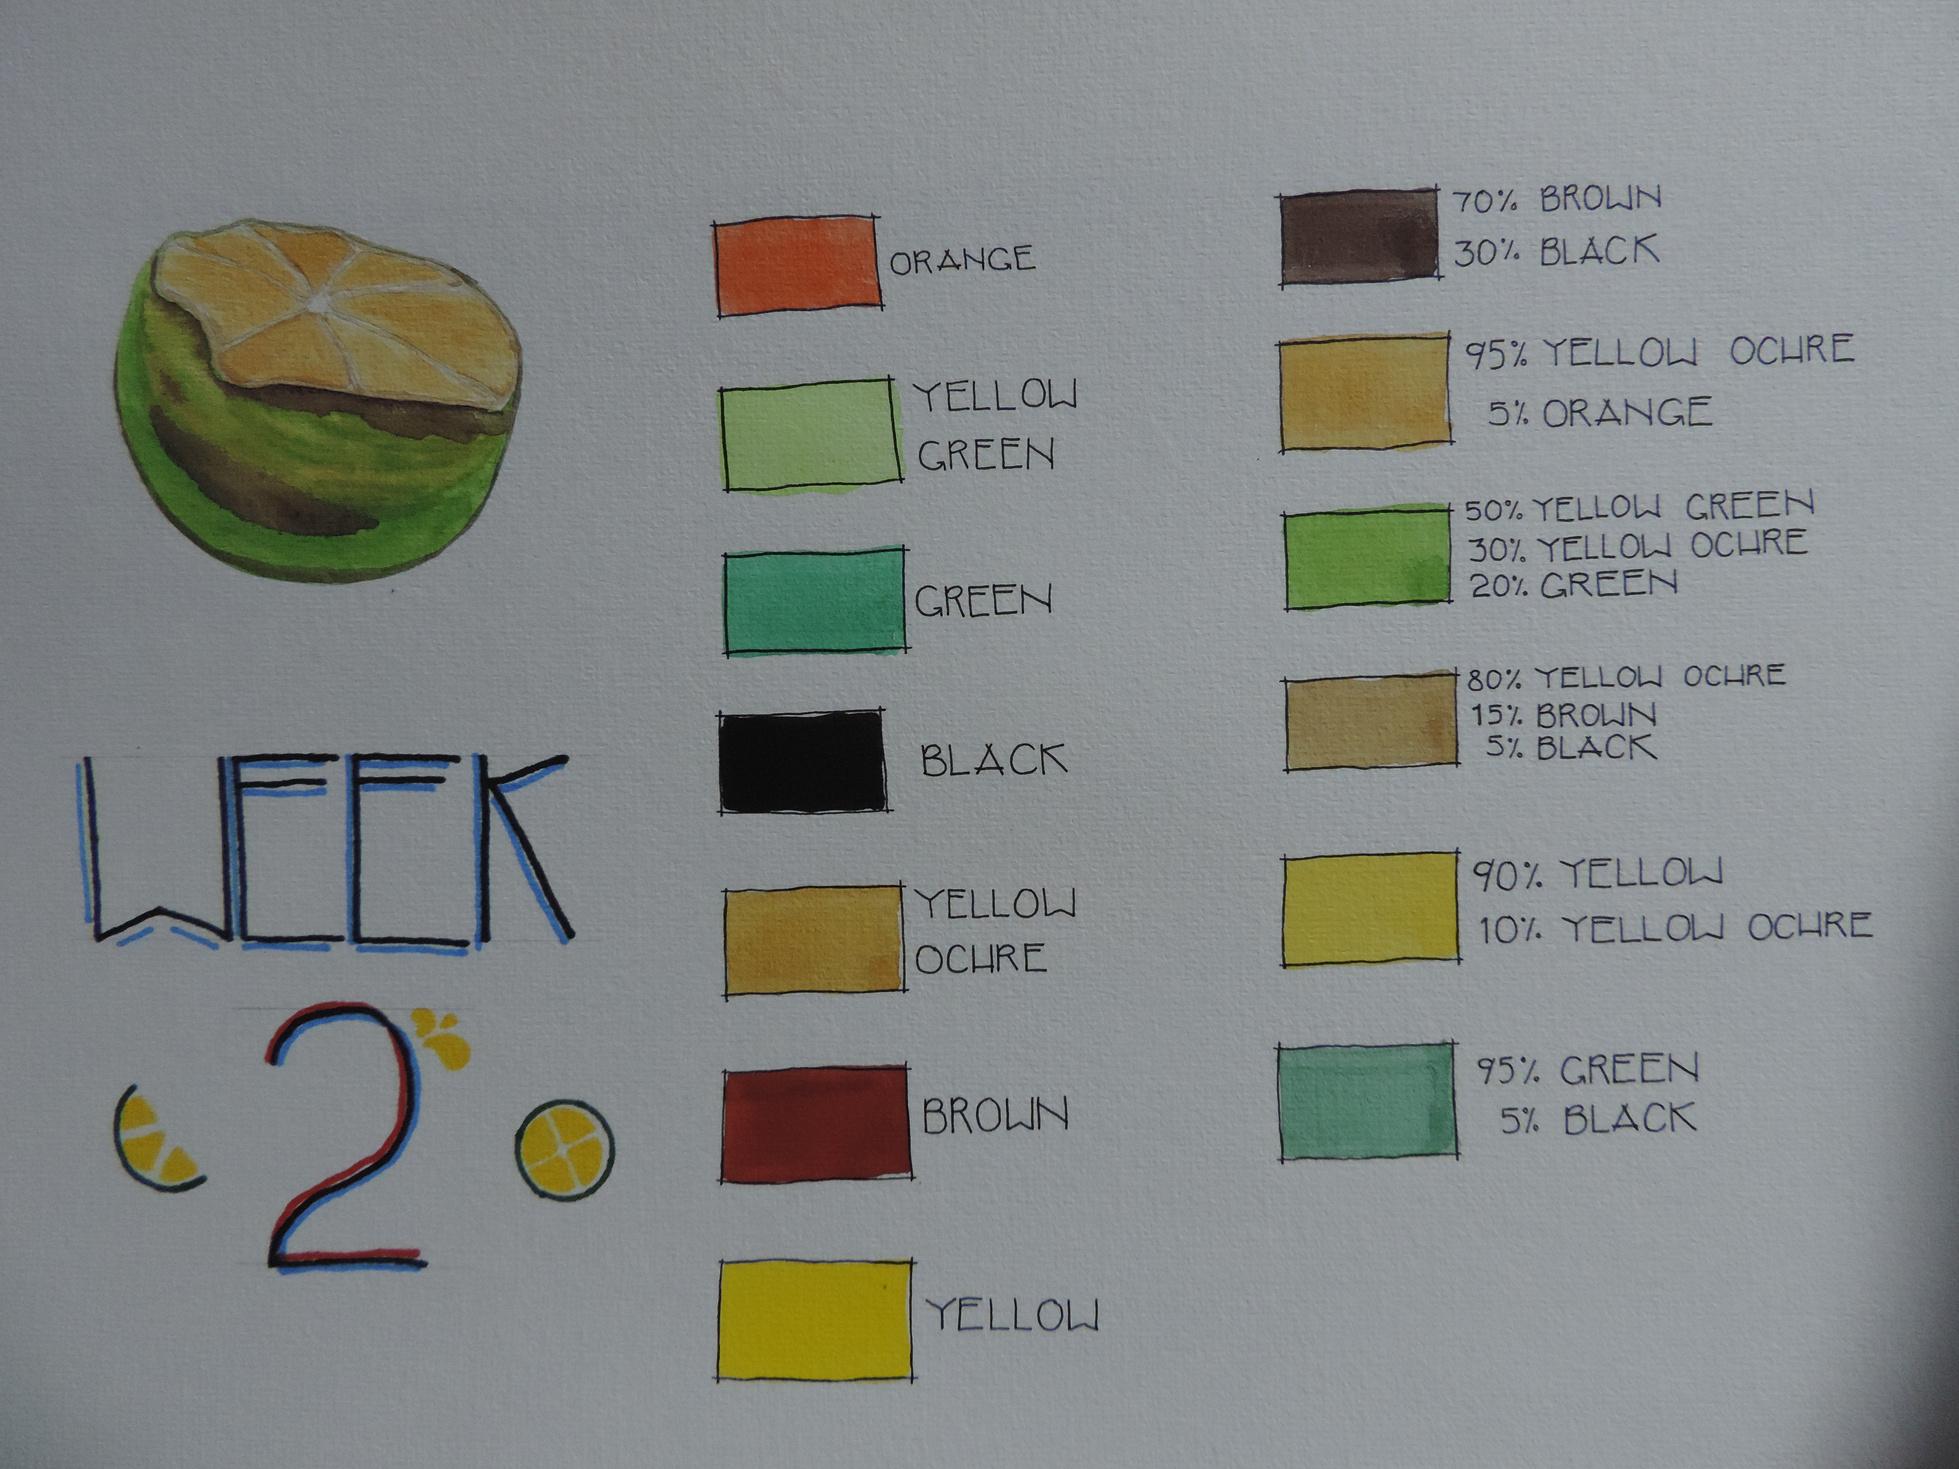 WEEK
2
ORANGE
YELLOW
GREEN
GREEN
BLACK
YELLOW
OCHRE
BROWN
YELLOW
70% BROWN
30% BLACK
95% YELLOW OCHRE
5% ORANGE
50% YELLOW GREEN
30% YELLOW OCHRE
20% GREEN
80% YELLOW OCHRE
15% BROWN
5% BLACK
90% YELLOW
10% YELLOW OCHRE
95% GREEN
5% BLACK